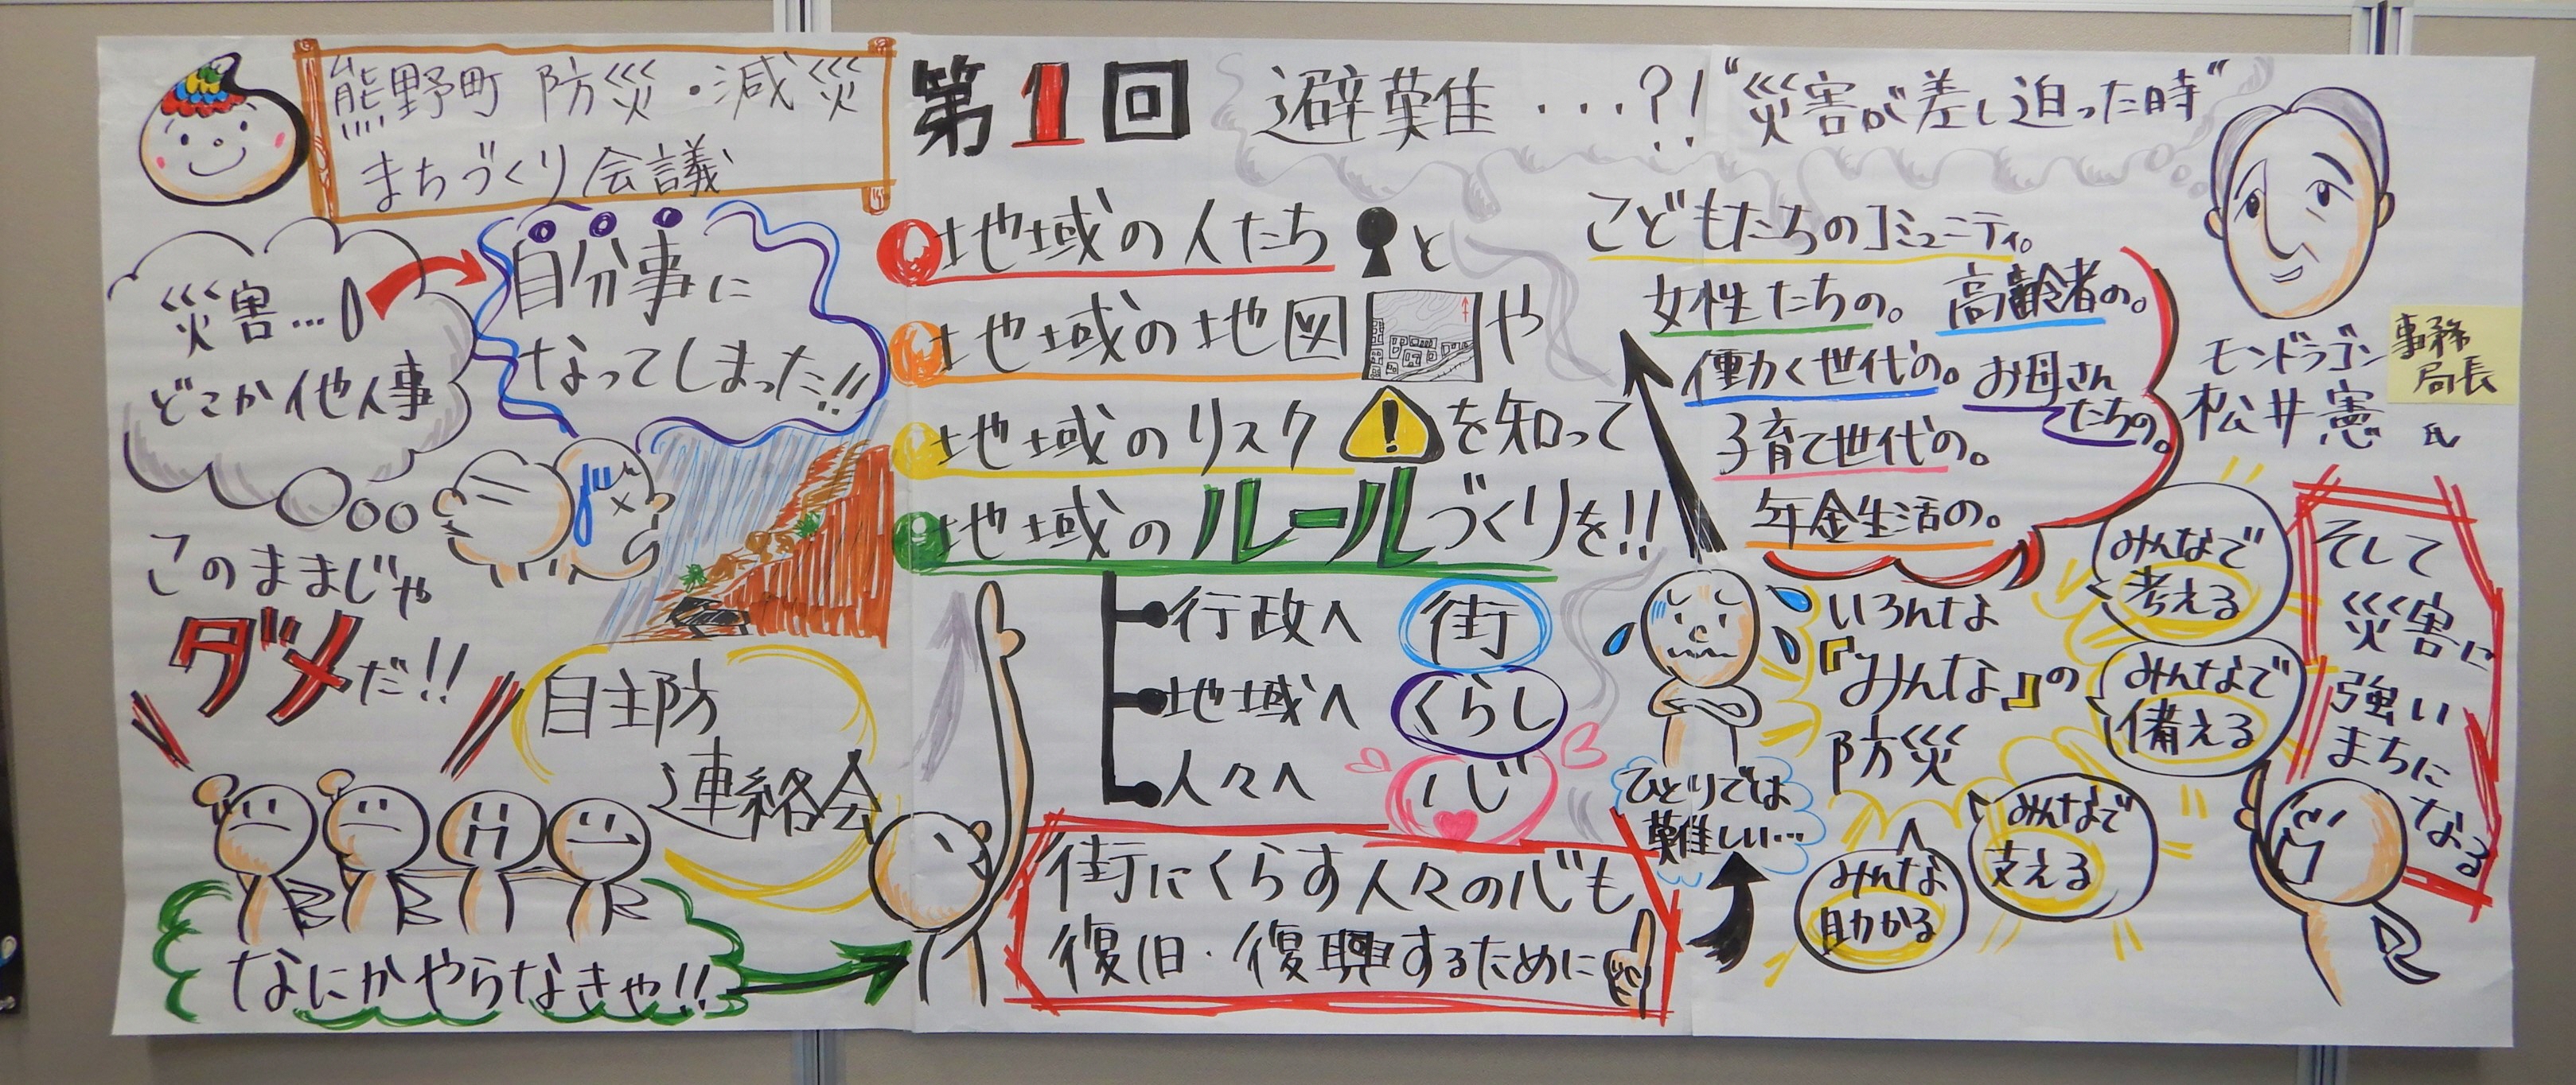 熊野町 防災・減災
まちづくり会議
第1回
避難・・・?!
"災害が差し迫った時"
災害…
どこか他人事
自分事に
なってしまった!!
このままじゃ
ダメだ!!
自主防
連絡会
なにかやらなきゃ!!
地域の人たちと
地域の地図や
地域のリスク!を知って
地域のルールづくりを!!
行政へ 街
地域へ くらし
人々へ 心
街にくらす人々の心も
復旧・復興するために
こどもたちのコミュニティ。
女性たちの。 高齢者の。
働く世代の。 お母さん
たちの。
子育て世代の。
年金生活の。
いろんな
『みんな』の
防災
ひとりでは
難しい…
みんなで
考える
みんなで
備える
みんなで
支える
みんな
助かる
モンドラゴン
事務
局長
松井憲 氏
そして
災害に
強い
まちに
なる